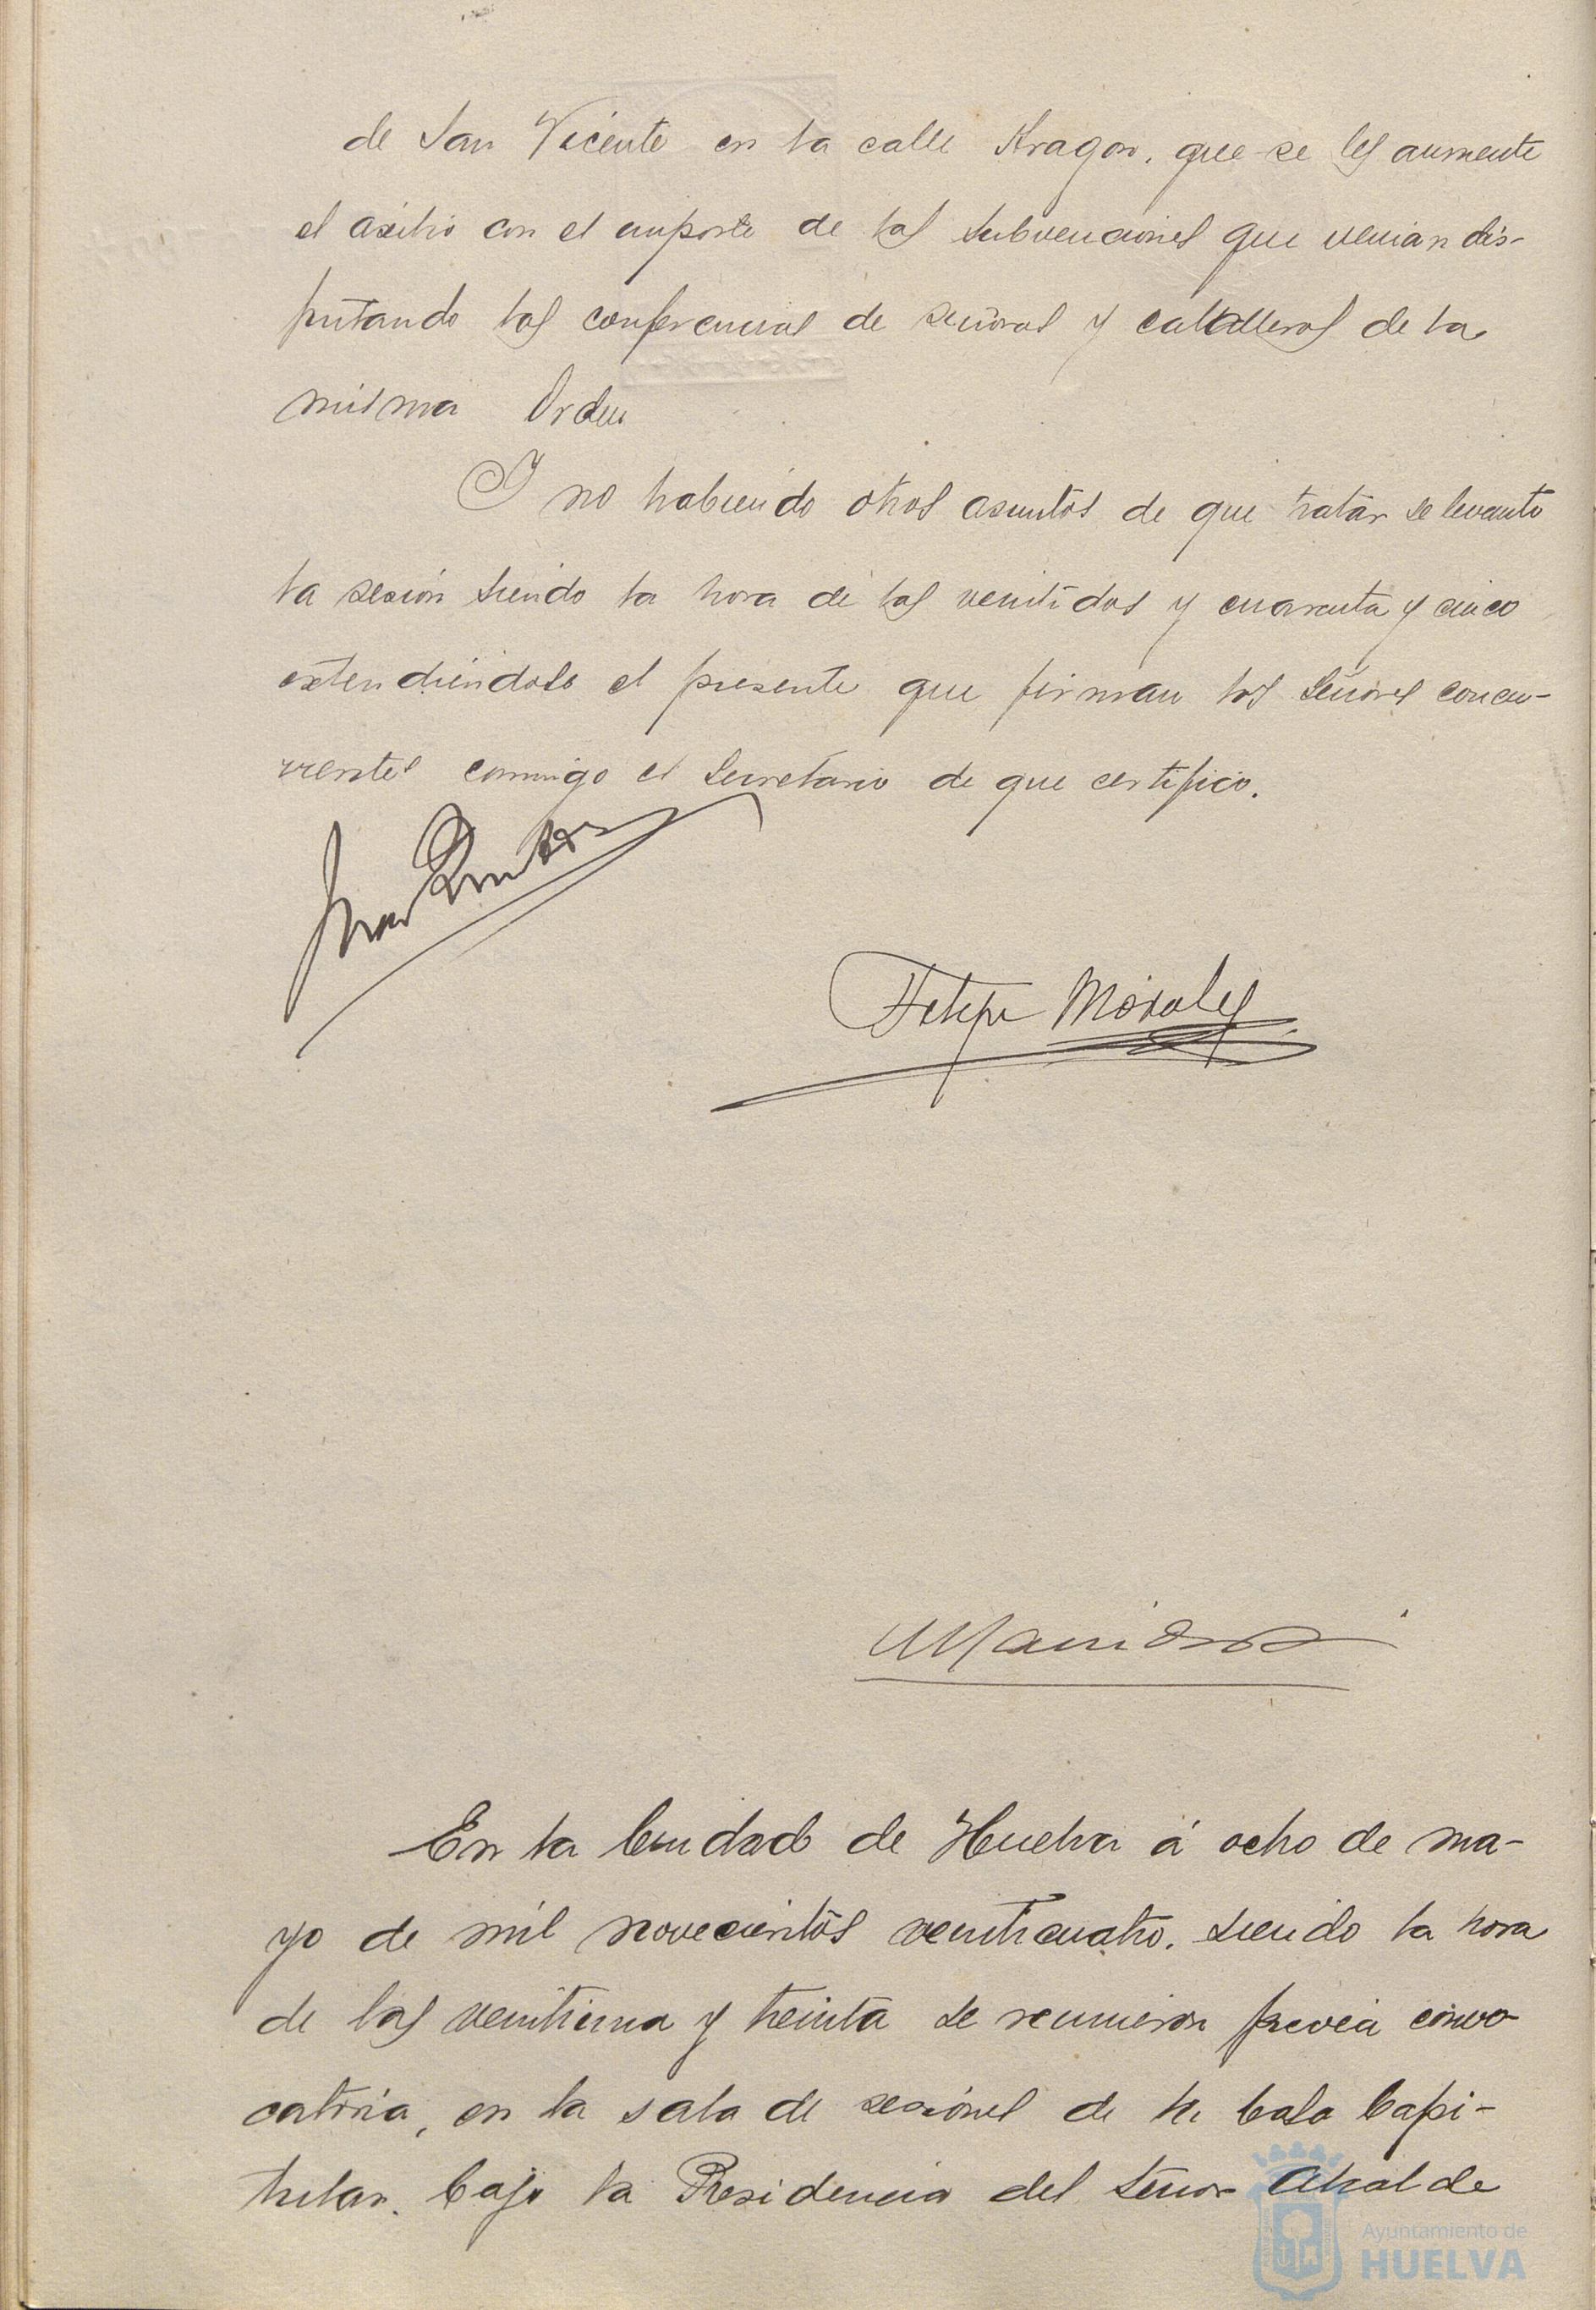 de San Vicente en la calle Aragon, que se les aumente
el asilio con el importe de las subvenciones que venian dis-
frutando las conferencias de señoras y caballeros de la
misma Orden
Y no habiendo otros asuntos de que tratar se levanto
la sesión siendo la hora de las ventidos y cuarenta y cinco
extendiéndose el presente que firman los señores concu-
rrentes conmigo el Secretario de que certifico.
Felipe Morales
En la Ciudad de Huelva á ocho de ma-
yo de mil novecientos venticuatro, siendo la hora
de las ventiuna y treinta se reunieron previa convo
catoria, en la sala de sesiones de la Casa Capi-
tular, bajo la Presidencia del Señor Alcalde
Ayuntamiento de
HUELVA